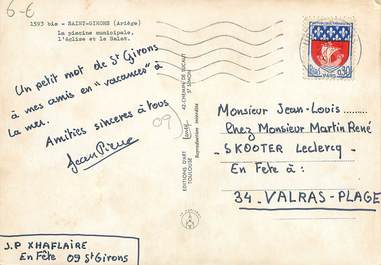 6-€
1593 bis - SAINT-GIRONS (Ariège)
La piscine municipale,
l'église et le Salat.
Un petit mot de St Girons
à mes amis en "vacances" à
La mer.
Amitiés sincères à tous
Jean Pierre
09
EDITIONS D'ART
TOULOUSE
Reproduction interdite
42, CHEMIN DE DUCAUT
ST SIMON
0,30
PARIS
Monsieur Jean-Louis ........
Chez Monsieur Martin René
-SKOOTER Leclercq -
En Fête à :
34_VALRAS-PLAGE
J.P XHAFLAIRE
En Fête 09 St Girons